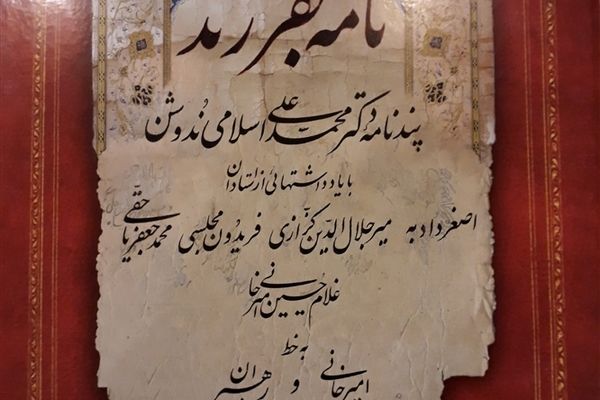 نامه به فرزند
پندنامه دکتر محمد علی اسلامی نُدوشن
با یادداشتهائی از استادان
اصغر دادبه میر جلال الدین کزّازی فریدون مجلسی محمد جعفر یاحقّی
غلام حسین امیرخانی
به خط
امیرخانی و رهبران